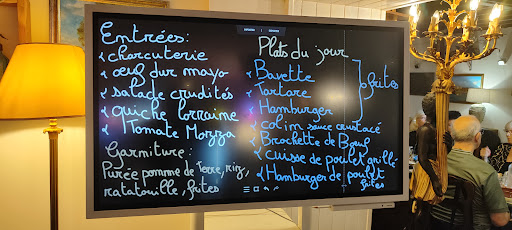 Entrées:
charcuterie
œuf dur mayo
salade crudités
quiche lorraine
Tomate Morzza
Garniture:
Purée pomme de Terre, riz,
ratatouille, frites
Plats du jour
Bavette
Tartare
Hamburger
frites
colim sauce crustacé
Brochette de Bœuf
cuisse de poulet grillé
Hamburger de poulet
frites